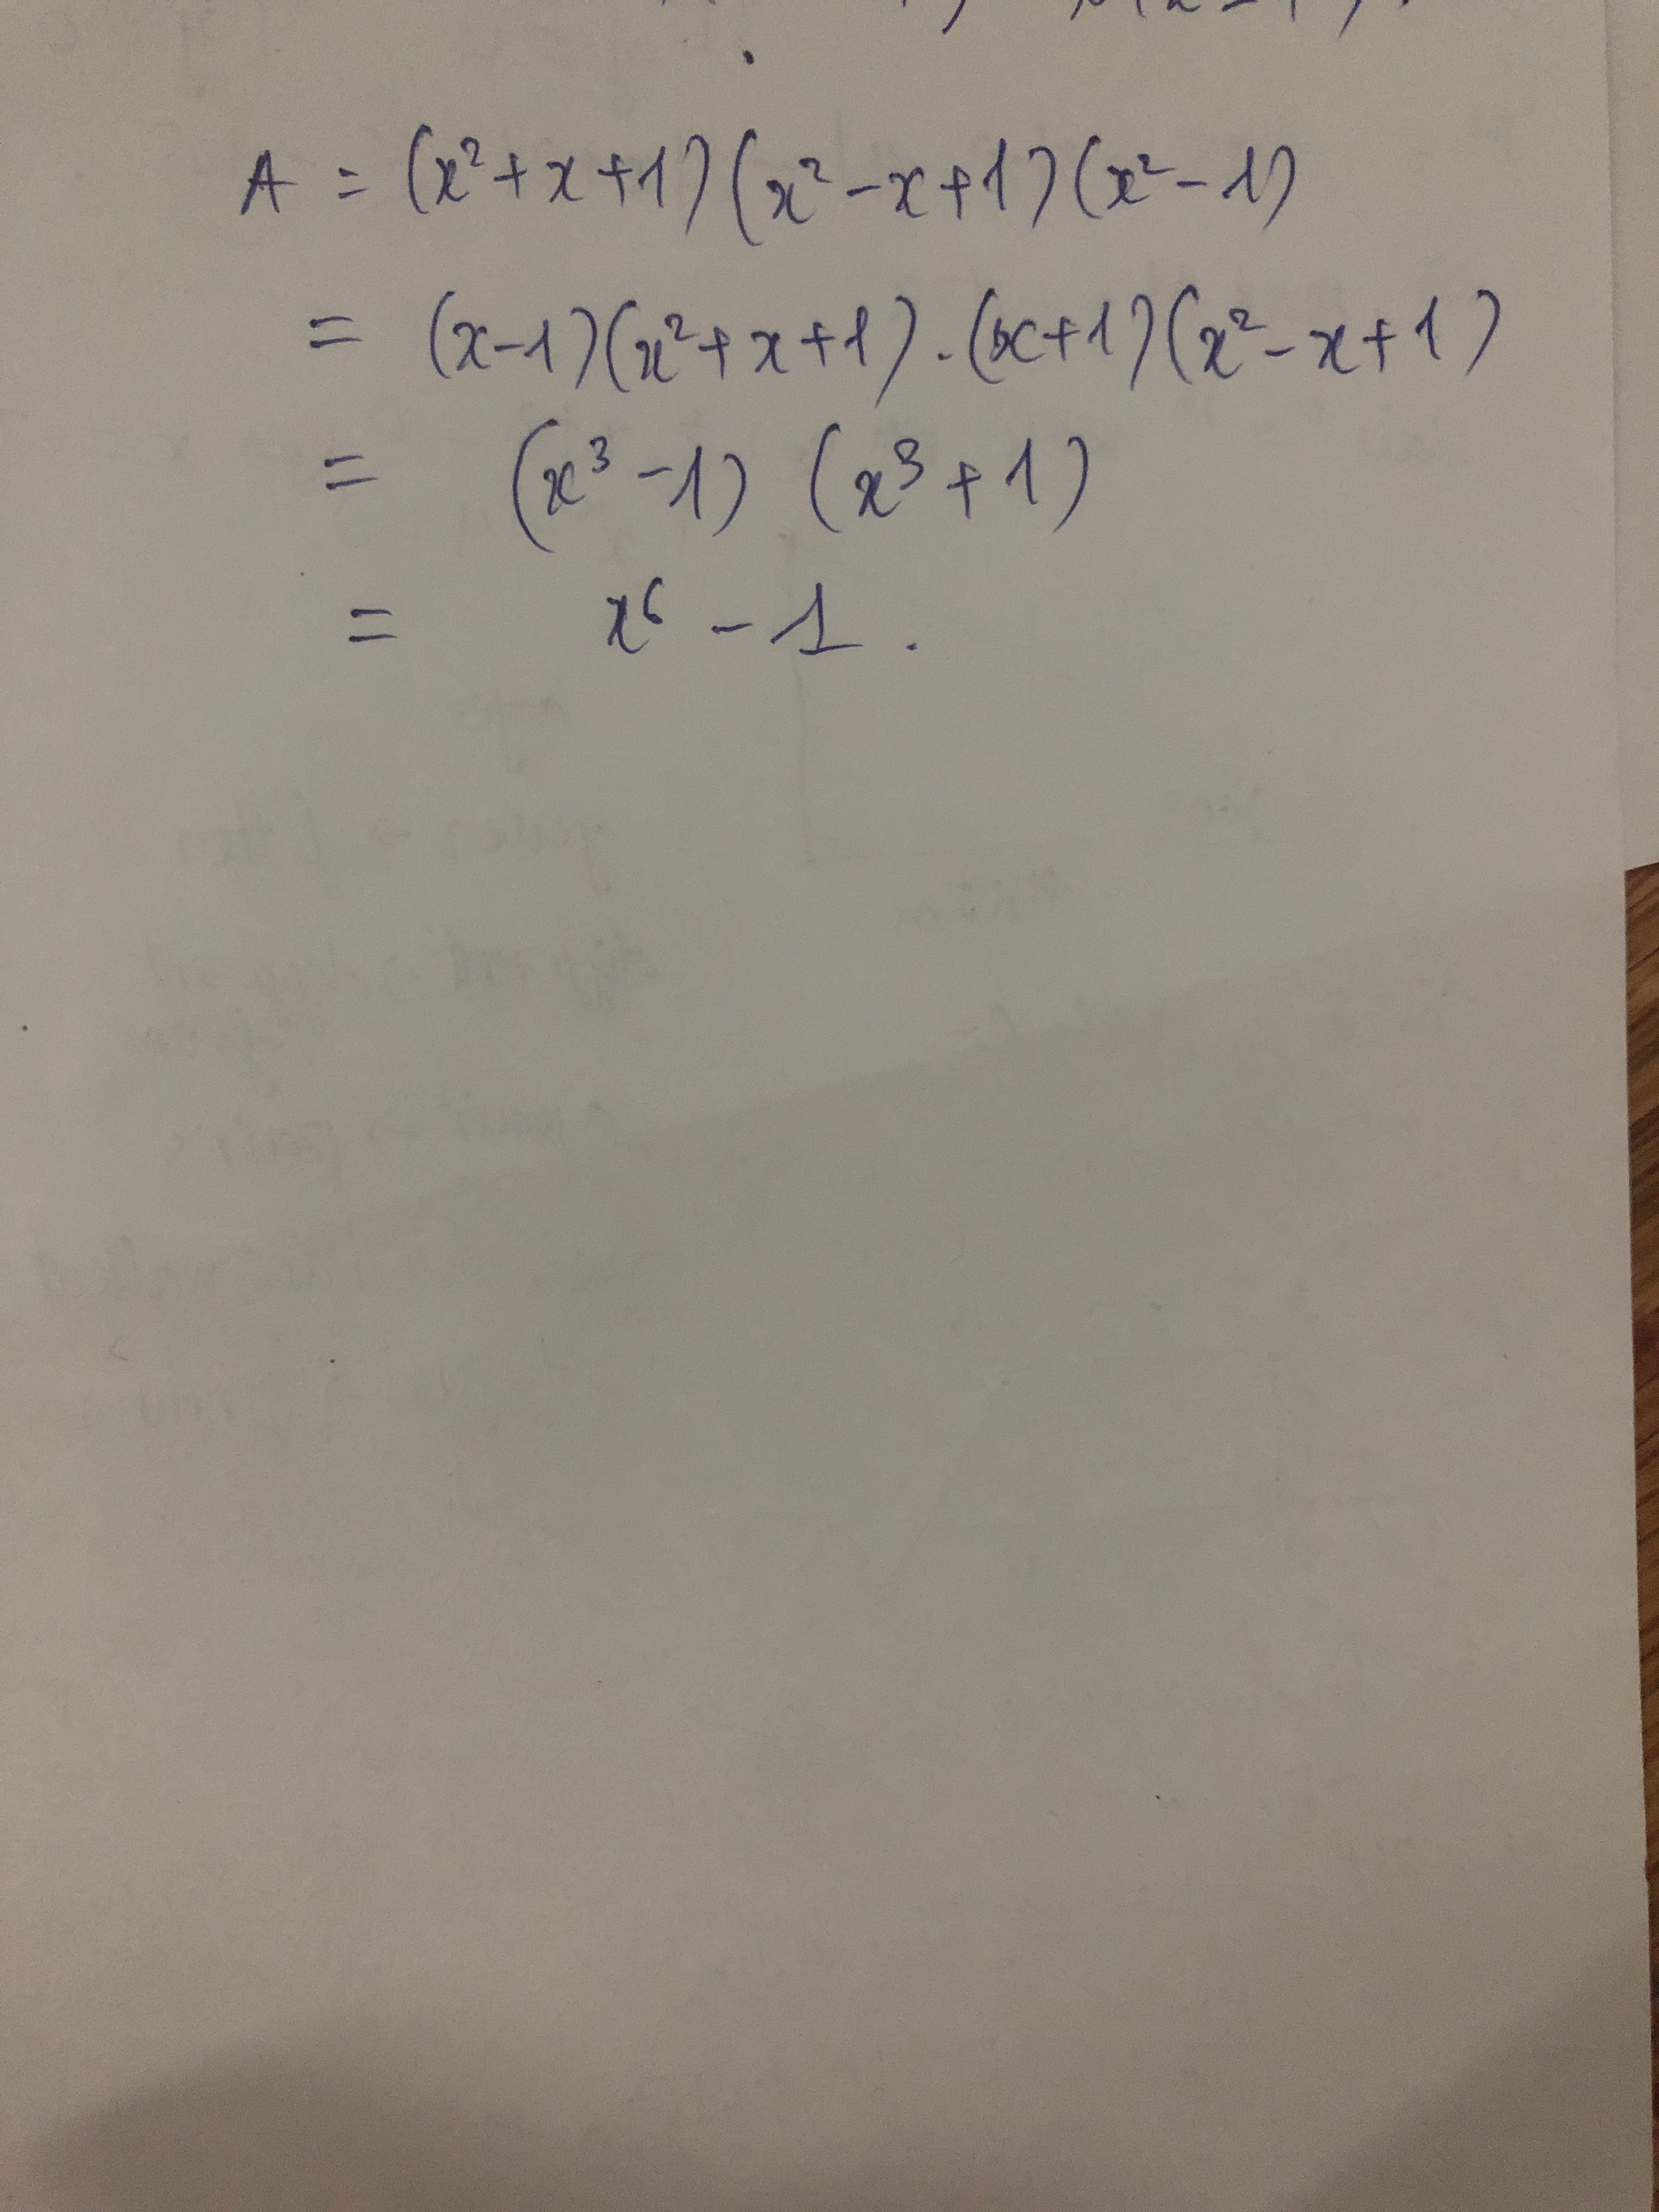 A = (x² + x + 1)(x² - x + 1)(x² - 1)
= (x - 1)(x² + x + 1) . (x + 1)(x² - x + 1)
= (x³ - 1) (x³ + 1)
= x⁶ - 1 .